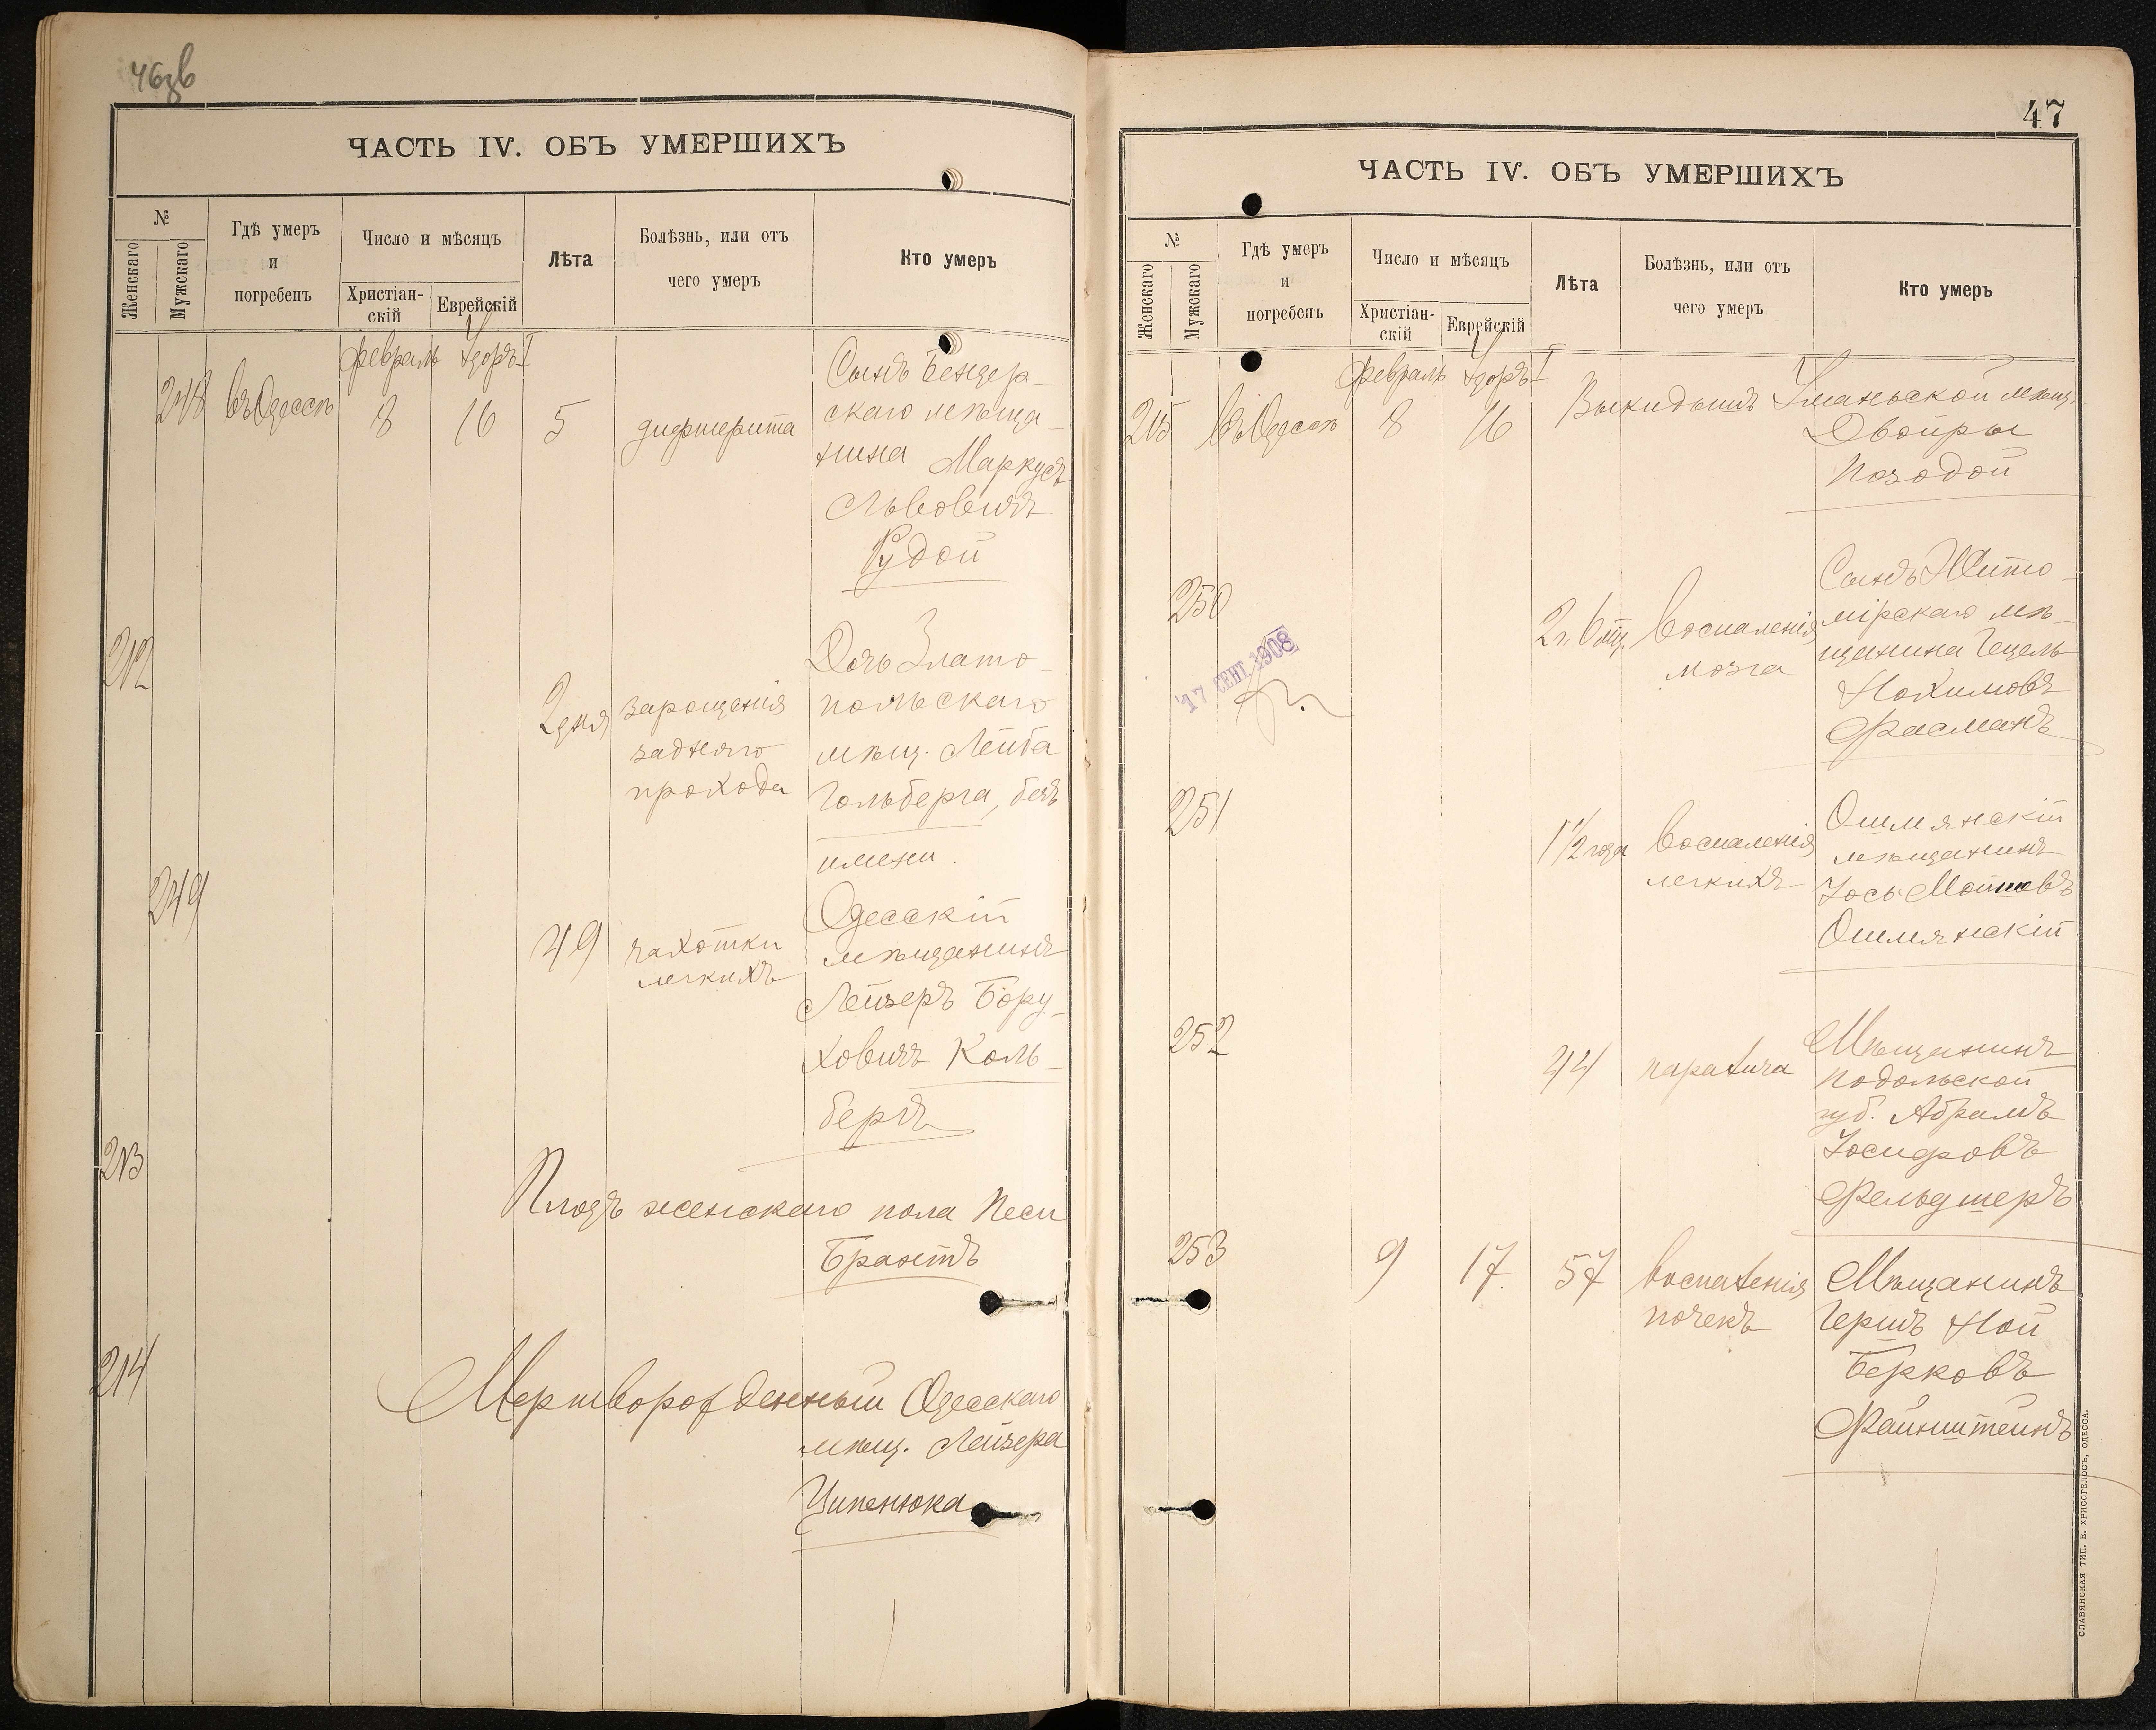 46об
ЧАСТЬ IV. ОБЪ УМЕРШИХЪ
№
Женскаго
Мужскаго
Гдѣ умеръ
и
погребенъ
Число и мѣсяцъ
Христіан-
скій
Еврейскій
Лѣта
Болѣзнь, или отъ
чего умеръ
Кто умеръ
Февраль Адоръ I
248 въ Одессѣ 8 16 5 дифтерита
Сынъ Бендер-
скаго мѣща-
нина Маркусъ
Львовичъ
Рудой
212
2 дня
заращенія
задняго
прохода
Дочь Злато-
польскаго
мѣщ. Лейба
Гольберга, безъ
имени.
249
49
чахотки
легкихъ
Одесскій
мѣщанинъ
Лейзеръ Бору-
ховичъ Коль-
бергъ
213
Плодъ женскаго пола Песи
Брантъ
214
Мертворожденный Одесскаго
мѣщ. Лейзера
Ципенюка
47
ЧАСТЬ IV. ОБЪ УМЕРШИХЪ
№
Женскаго
Мужскаго
Гдѣ умеръ
и
погребенъ
Число и мѣсяцъ
Христіан-
скій
Еврейскій
Лѣта
Болѣзнь, или отъ
чего умеръ
Кто умеръ
Февраль Адоръ I
215 въ Одессѣ 8 16 Выкидышъ Уманьской мѣщ.
Двойры
Позодой
250
2 г. 6 мц.
воспаленія
мозга
Сынъ Жито-
мірскаго мѣ-
щанина Гецель
Нохимовъ
Фасманъ
17 СЕНТ. 1908
251
1 1/2 года
воспаленія
легкихъ
Ошмянскій
мѣщанинъ
Іось
Ошмянскій
252
44
паралича
Мѣщанинъ
Подольской
губ. Абрамъ
Іосифовъ
Фельдшеръ
253
9 17 57
воспаленія
почекъ
Мѣщанинъ
Гершъ Ной
Берковъ
Файнштейнъ
СЛАВЯНСКАЯ ТИП. Е. ХРИСОГЕЛОСЪ, ОДЕССА.